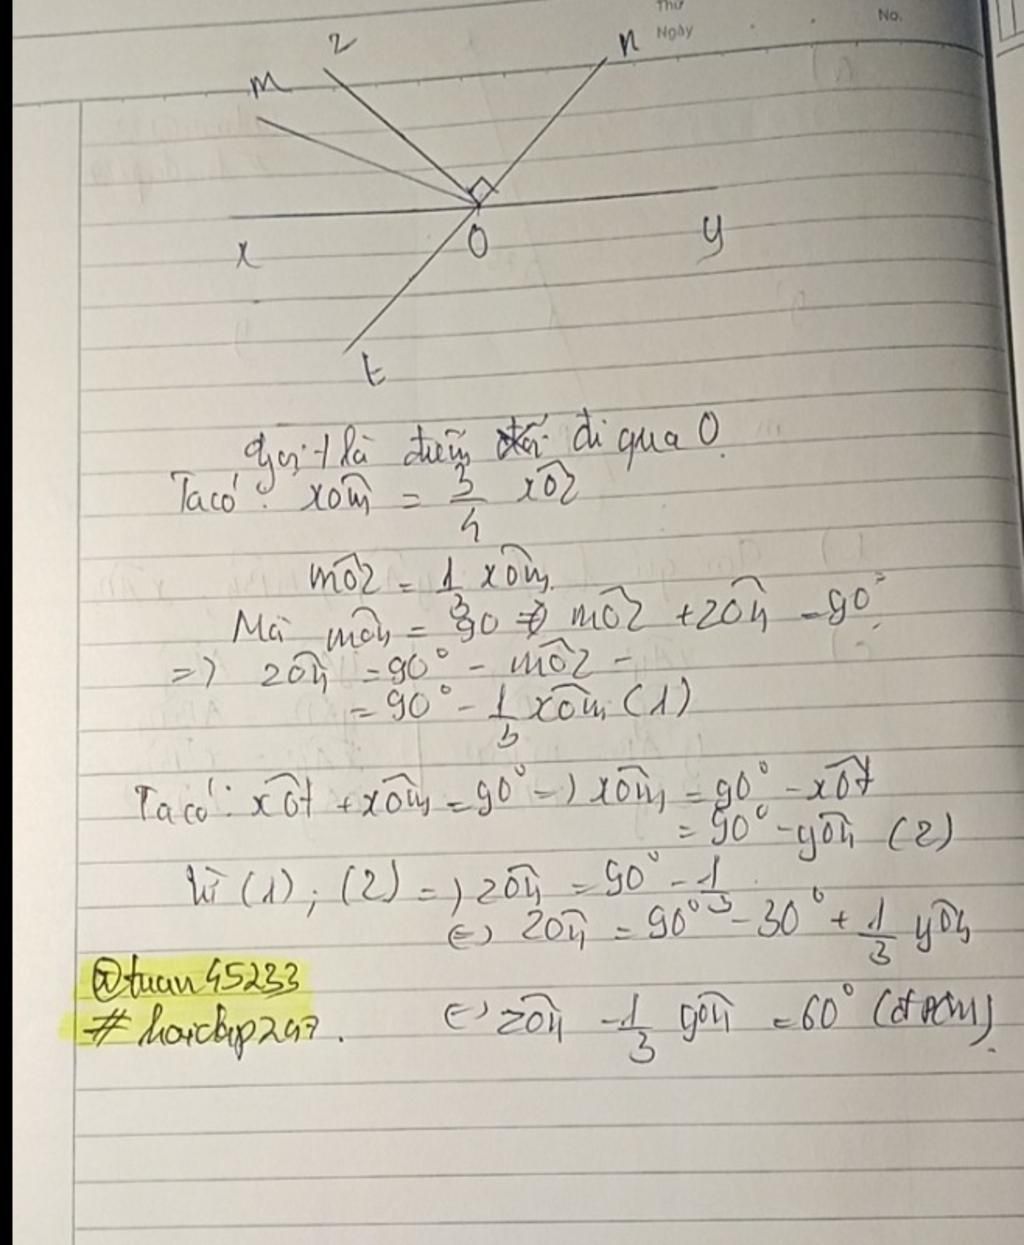 Thứ
Ngày
No.
z
n
m
x
O
y
t
Gọi t là điểm đi qua O
Ta có: xOm = 3/4 xOz
mOz = 1/3 xOm.
Mà mOn = 90 => mOz + zOn = 90°
=> zOn = 90° - mOz -
= 90° - 1/3 xOm (1)
Ta có: xOt + xOm = 90° => xOm = 90° - xOt
= 90° - yOn (2)
Từ (1); (2) => zOn = 90° - 1/3
<=> zOn = 90° - 30° + 1/3 yOn
@tuan45233
#hoidap247.
<=> zOn - 1/3 yOn = 60° (đpcm).